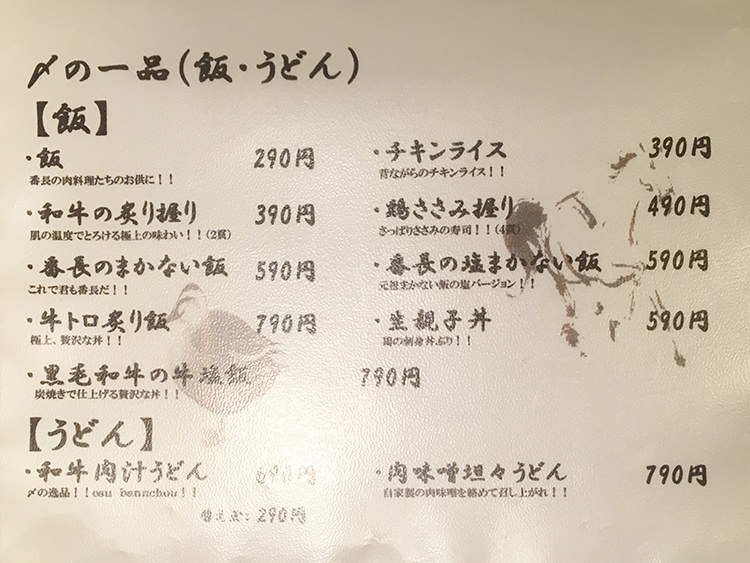 〆の一品(飯・うどん)
【飯】
・飯 290円
番長の肉料理たちのお供に!!
・和牛の炙り握り 390円
肌の温度でとろける極上の味わい!!(2貫)
・番長のまかない飯 590円
これで君も番長だ!!
・牛トロ炙り飯 790円
極上、贅沢な丼!!
・黒毛和牛の牛塩飯 790円
炭焼きで仕上げる贅沢な丼!!
・チキンライス 390円
昔ながらのチキンライス!!
・鶏ささみ握り 490円
さっぱりささみの寿司!!(4貫)
・番長の塩まかない飯 590円
元祖まかない飯の塩バージョン!!
・生親子丼 590円
鶏の刺身丼ぶり!!
【うどん】
・和牛肉汁うどん 690円
〆の逸品!!osu bannchou!!
290円
・肉味噌坦々うどん 790円
自家製の肉味噌を絡めて召し上がれ!!